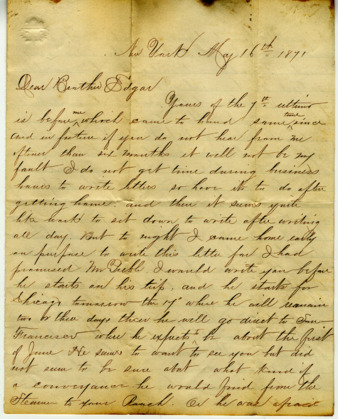 New York May 16th 1871
Dear Brother Edgar
Yours of the 7th ultimo
is before me which came to hand some time since
and in future if you do not hear from me
oftener than six months it will not be my
fault I do not get time during business
hours to write letters so have it to do after
getting home, and then it seems quite
like work to sit down to write after writing
all day. But to night I came home early
on purpose to write this letter for I had
promised Mr I would write you before
he starts on his trip, and he starts for
Chicago tomorrow the 17" where he will remain
two or three days thence he will go direct to San
Francisco where he expects to be about the first
of June He seems to want to see you but did
not seem to be sure abt what kind of
a conveyance he would find from the
Steamer to your Ranch. Or he was afraid